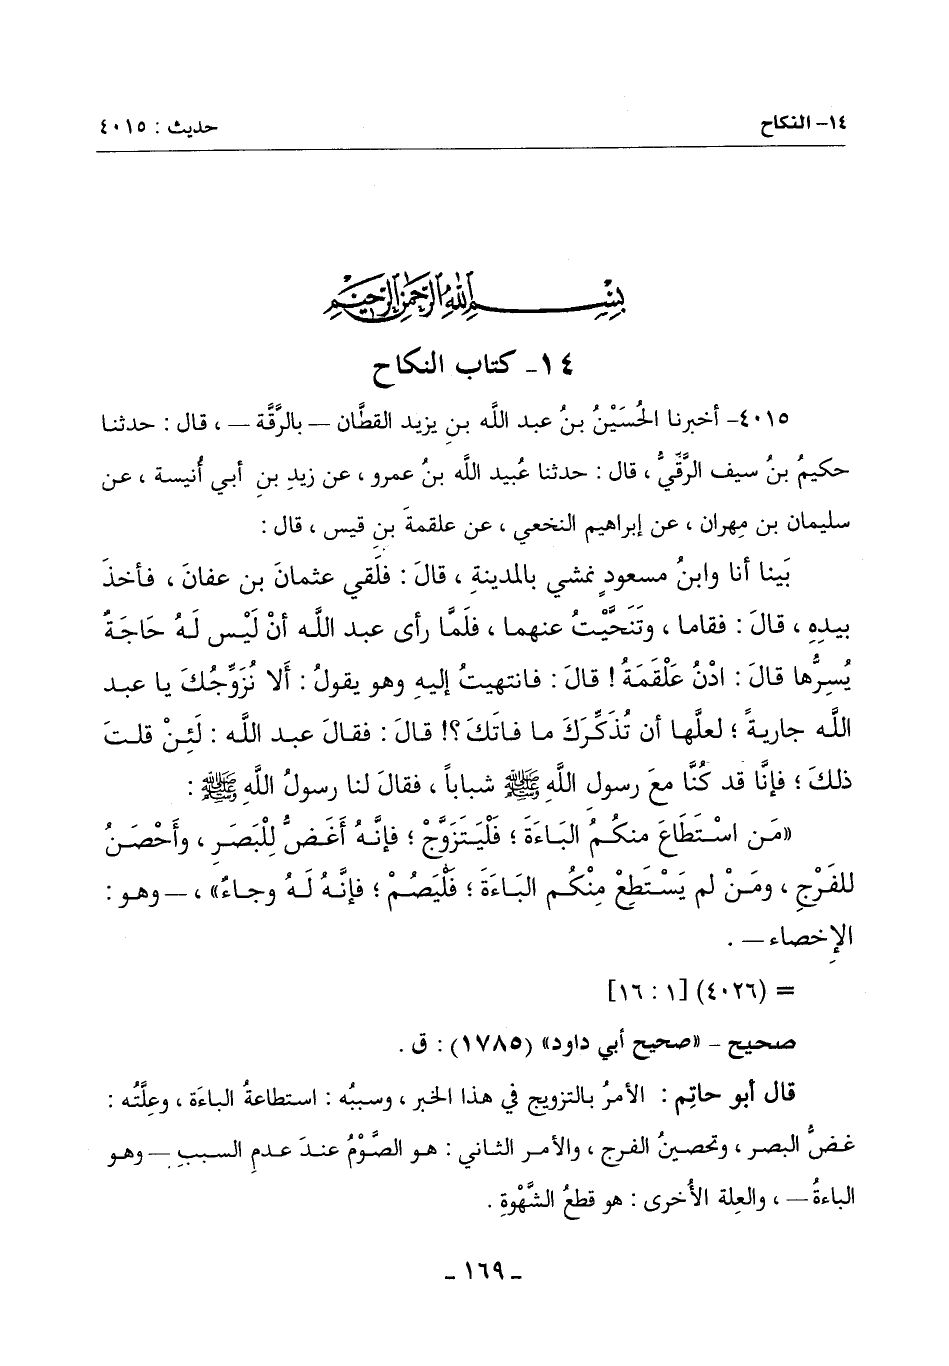 ١٤- النكاح
حديث : ٤٠١٥
بِسْمِ اللَّهِ الرَّحْمَنِ الرَّحِيمِ
١٤ - كتاب النكاح
٤٠١٥- أخبرنا الحُسَيْنُ بنُ عبد اللَّه بنِ يزيد القطَّان – بالرَّقَّة – ، قال : حدثنا
حكيمُ بنُ سيف الرَّقيُّ ، قال : حدثنا عُبيد اللَّه بنُ عمرو ، عن زيدِ بنِ أبي أُنيسة ، عن
سليمان بن مِهران ، عن إبراهيم النخعي ، عن علقمةَ بنِ قيس ، قال :
بَينا أنا وابنُ مسعودٍ نمشي بالمدينةِ ، قالَ : فلَقي عثمانَ بن عفانَ ، فأخذَ
بيدِهِ ، قالَ : فقاما ، وتَنَحَّيْتُ عنهما ، فلَمَّا رأى عبد اللَّه أنْ لَيْس لَهُ حَاجَةٌ
يُسرُّها قالَ : ادْنُ عَلْقَمَةُ ! قالَ : فانتهيتُ إليهِ وهو يقولُ : أَلا نُزَوِّجُكَ يا عبد
اللَّه جاريةً ؛ لعلَّها أن تُذَكِّرَكَ ما فاتَكَ ؟! قالَ : فقالَ عبد اللَّه : لَئِنْ قلتَ
ذلكَ ؛ فإنَّا قد كُنَّا معَ رسولِ اللَّهِ ﷺ شباباً ، فقالَ لنا رسولُ اللَّهِ ﷺ :
«مَن اسْتَطَاعَ منكُمُ البَاءَةَ ؛ فَلْيَتزَوَّجْ ؛ فإنَّهُ أَغَضُّ لِلْبَصَرِ ، وأَحْصَنُ
للفَرْجِ ، ومَنْ لم يَسْتَطِعْ مِنْكُم البَاءَةَ ؛ فَلْيَصُمْ ؛ فإنَّهُ لَهُ وجاءٌ» ، – وهو :
الإخصاء – .
= (٤٠٢٦) [١ : ١٦]
صحيح - «صحيح أبي داود» (١٧٨٥) : ق .
قال أبو حاتِم : الأمرُ بالتزويج في هذا الخبر ، وسببُه : استطاعةُ الباءَة ، وعِلَّتُه :
غضُّ البصر ، وتحصينُ الفرج ، والأمر الثاني : هو الصَّوْمُ عندَ عدمِ السببِ – وهو
الباءةُ – ، والعِلة الأُخرى : هو قطعُ الشَّهْوةِ .
- ١٦٩ -